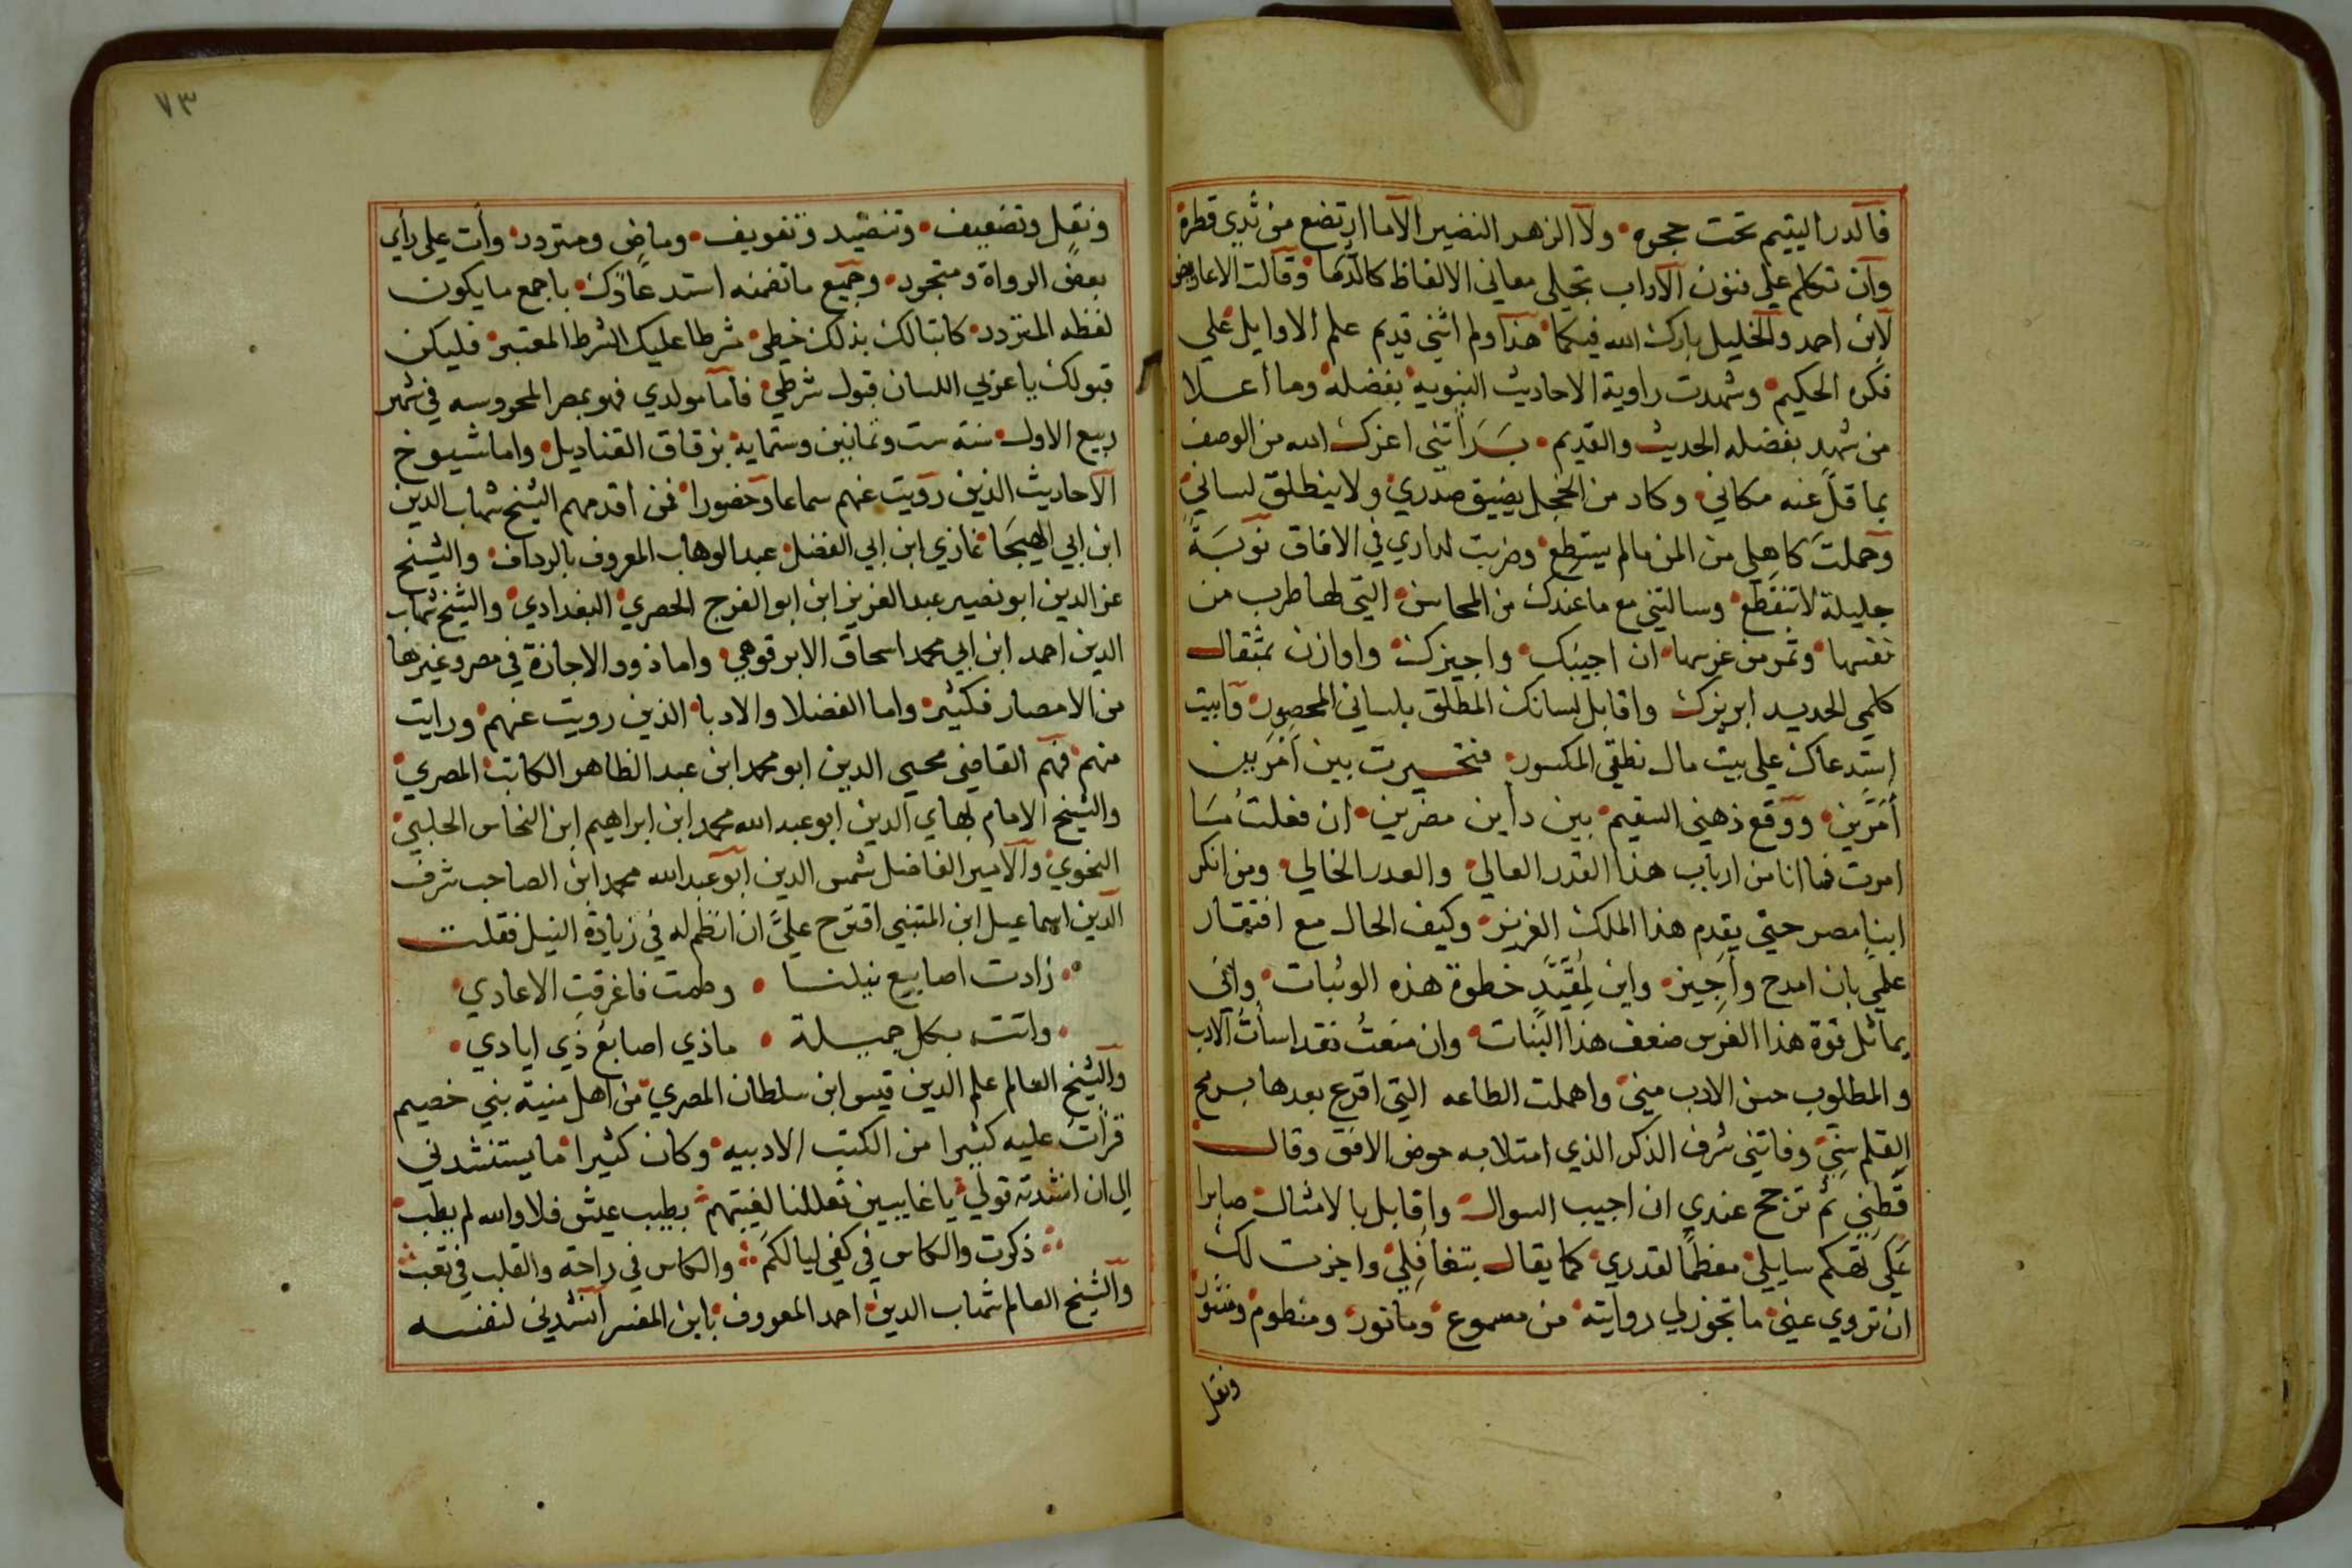 فالدر اليتيم تحت حجره ولا الزهر النضير الا ما ارتضع من ثدي قطره
وان تكلم علي فنون الآداب تجلي معاني الالفاظ كالدما وقالت الاعاريض
لابن احمد والخليل بارك الله فيكما هذا ولم اثني قديم علم الاوايل علي
فكره الحكيم وشهدت راوية الاحاديث النبويه بفضله وما أعلا
من شهد بفضله الحديث والقديم بدأتني اعزك الله من الوصف
بما قل عنه مكاني وكاد من الخجل يضيق صدري ولا ينطلق لساني
وحملت كاهلي من المن مالم يستطع وضربت لداري في الافاق نوبة
جليلة لا تنقطع وسالتني مع ما عندك من المحاسن التي لها طرب من
نفسها وثمر من غرسها ان اجيبك واجيزك واوازن بمثقال
كلمي الحديد ابريزك واقابل لسانك المطلق بلساني المحصور وابيت
استدعاك علي بيت مال نطقي المكسور فتحيرت بين أمرين
أمرين ووقع ذهني السقيم بين داين مضرين ان فعلت ما
امرت فما انا من ارباب هذا القدر العالي والصدر الخالي ومن انكر
ابنا مصر حتي يقدم هذا الملك العزيز وكيف الحال مع افتقار
علمي بان امدح وأجيز واين لمقيد خطوة هذه الوثبات واني
يماثل قوة هذا الغرس ضعف هذا النبات وان منعت فقد اسأت الادب
والمطلوب حسن الادب مني واهملت الطاعه التي اقرع بعدها برمح
القلم سني وفاتني شرف الذكر الذي امتلا به حوض الافق وقال
قطني ثم ترجح عندي ان اجيب السوال واقابل بالامثال صابرا
علي تهكم سايلي معظما لقدري كما يقال بتغافلي واجزت لك
ان تروي عني ما تجوز لي روايته من مسموع وماثور ومنظوم ومنثور
ونقل
٧٣
ونقل وتضعيف وتنضيد وتفويف وماض ومتردد وأت علي رأي
بعض الرواة ومتجرد وجميع ما تضمنه استدعاؤك باجمع ما يكون
لفظه المتردد كاتبا لك بذلك خطي شرطا عليك الشرط المعتبر فليكن
قبولك يا عربي اللسان قبول شرطي فاما مولدي فهو بمصر المحروسه في شهر
ربيع الاول سنة ست وثمانين وستماية بزقاق القناديل واما شيوخ
الاحاديث الذين رويت عنهم سماعا وحضورا فمن اقدمهم الشيخ شهاب الدين
ابن ابي الهيجا غازي ابن ابي الفضل عبد الوهاب المعروف بالرداف والشيخ
عز الدين ابو نصير عبد العزيز ابن ابو الفرج الحصري البغدادي والشيخ شهاب
الدين احمد ابن ابي محمد اسحاق الابرقوهي واما ذوو الاجازة في مصر وغيرها
من الامصار فكثير واما الفضلا والادبا الذين رويت عنهم ورايت
منهم فهم القاضي محيي الدين ابو محمد ابن عبد الظاهر الكاتب المصري
والشيخ الامام بهاي الدين ابو عبد الله محمد ابن ابراهيم ابن النحاس الحلبي
النحوي والامير الفاضل شمس الدين ابو عبد الله محمد ابن الصاحب شرف
الدين اسماعيل ابن المتنبي اقترح علي ان انظم له في زيادة النيل فقلت
زادت اصابيع نيلنا وطمت فاغرقت الاعادي
واتت بكل جميلة ماذي اصابع ذي ايادي
والشيخ العالم علم الدين قيس ابن سلطان المصري من اهل منية بني خصيم
قرأت عليه كثيرا من الكتب الادبيه وكان كثيرا ما يستنشدني
الي ان انشدته قولي يا غايبين تعللنا لغيبتهم بطيب عيش فلا والله لم يطب
ذكرت والكاس في كفي ليالكم والكاس في راحة والقلب في تعب
والشيخ العالم شهاب الدين احمد المعروف بابن المفسر انشدني لنفسه